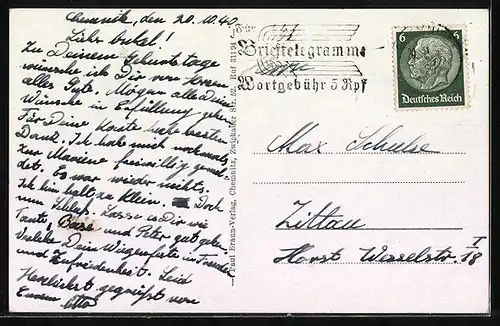 Chemnitz, den 20. III 40.
Lieber Onkel!
Zu Deinem Geburtstage
wünsche ich Dir von Herzen
alles Gute. Mögen alle Deine
Wünsche in Erfüllung gehen.
Für Deine Karte habe besten
Dank. Ich habe mich nochmals
zur Marine freiwillig gemel-
det. Es war wieder nichts.
Ich bin halt zu klein. Doch
nun Schluß. Lasse es Dir wie
Tante, und Peter gut gehen.
Verlebe Dein Wiegenfeste in Freude
und Zufriedenheit. Seid
Herzlichst gegrüßt von
Eurem Otto
Paul Braun-Verlag, Chemnitz, Zwickauer Str. 52, Ruf 31194
Für
Brieftelegramme
Wortgebühr 5 Rpf
6 6
Deutsches Reich
Max Schulze
Zittau
Horst Wesselstr. 18 I